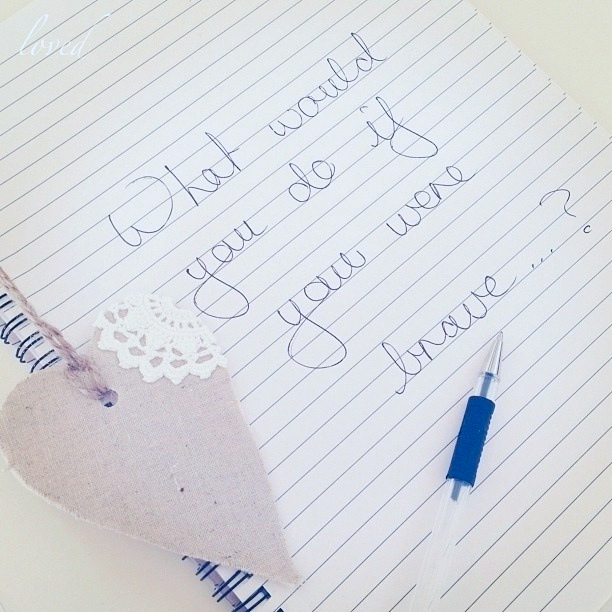 loved
What would
you do if
you were
brave ...?